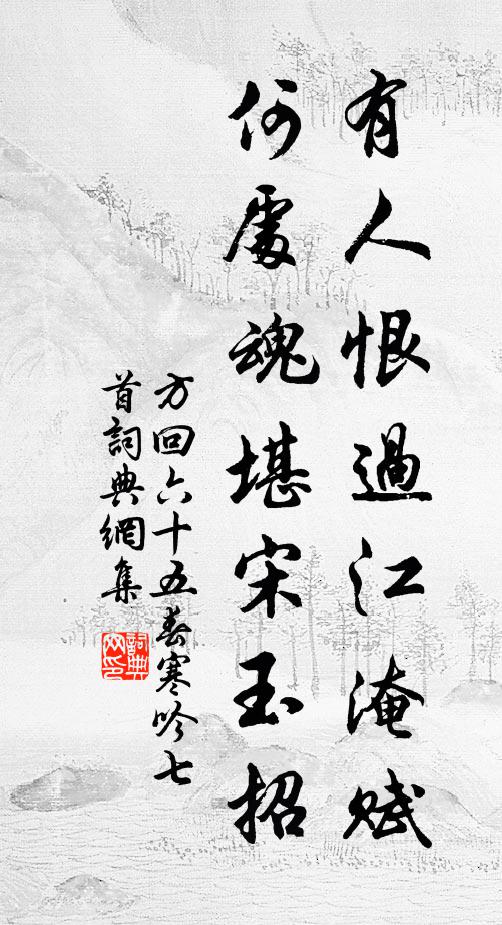 有人恨過江淹賦
何處魂堪宋玉招
方回六十五春寒吟七
首詞典網集
詞典
网印